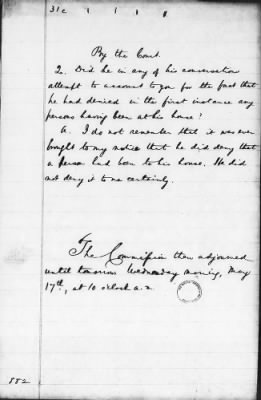 31c
By the Court.
Q. Did he in any of his conversation
attempt to account to you for the fact that
he had denied in the first instance any
persons having been at his house?
A. I do not remember that it was ever
brought to my notice that he did deny that
a person had been to his house. He did
not deny it to me certainly.
The Commission then adjourned
until tomorrow Wednesday morning, May
17th, at 10 o'clock a.m.
552